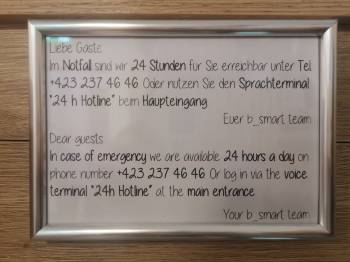 Liebe Gäste
Im Notfall sind wir 24 Stunden für Sie erreichbar unter Tel
+423 237 46 46 Oder nutzen Sie den Sprachterminal
"24 h Hotline" beim Haupteingang
Euer b_smart team
Dear guests
In case of emergency we are available 24 hours a day on
phone number +423 237 46 46 Or log in via the voice
terminal "24h Hotline" at the main entrance
Your b_smart team